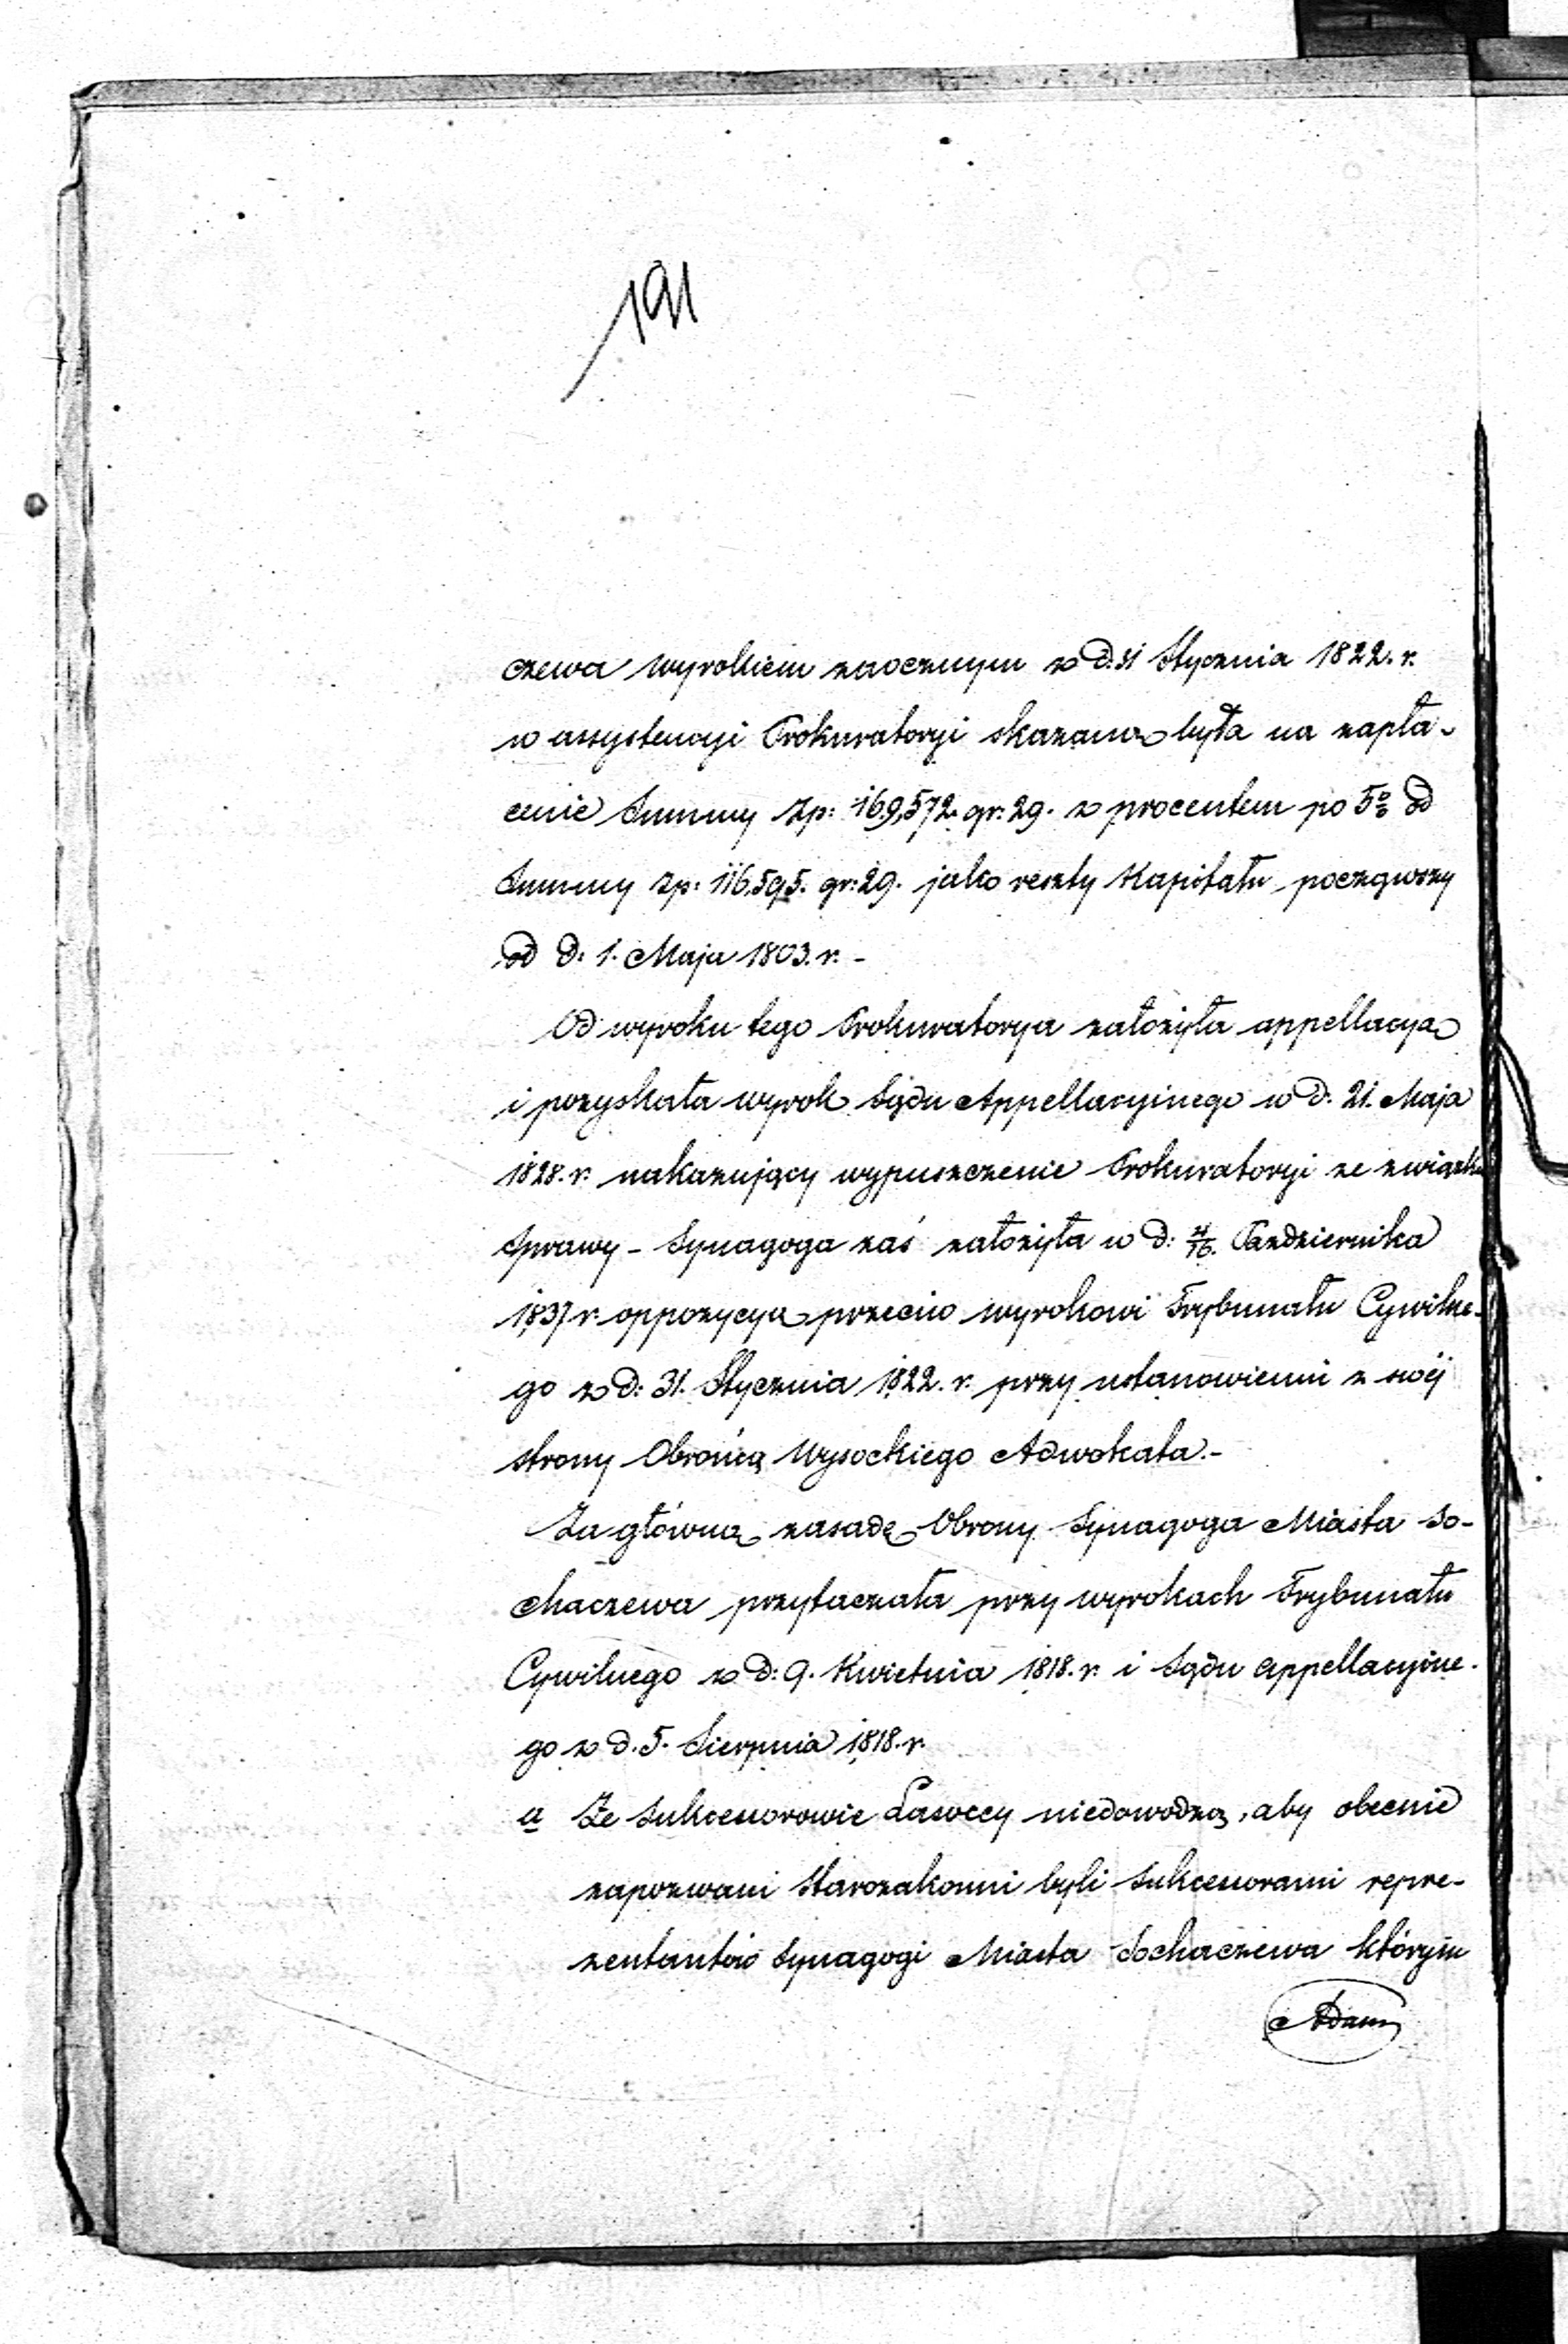 191
czewa wyrokiem zaocznym z d. 31 Stycznia 1822. r.
w assystencyi Prokuratoryi skazaną była na zapła-
cenie Summy Zp: 169,572. gr: 29. z procentem po 5% od
Summy Zp: 116,595. gr: 29. jako reszty Kapitału począwszy
od d: 1. Maja 1803. r. -
Od wyroku tego Prokuratorya założyła appellacyą
i pozyskała wyrok Sądu Appellacyinego w d. 21. Maja
1828. r. nakazujący wypuszczenie Prokuratoryi ze związku
Sprawy - Synagoga zaś założyła w d: 4/16. Października
1837 r. oppozycyą przeciw wyrokowi Trybunału Cywilne-
go z d: 31. Stycznia 1822. r. przy ustanowieniu z swéj
strony Obrońcą Wysockiego Adwokata.-
Za główną zasadę Obrony Synagoga Miasta So-
chaczewa przytaczała przy wyrokach Trybunału
Cywilnego z d: 9. Kwietnia 1818. r. i Sądu appellacyine-
go z d. 5. Sierpnia 1818. r.
a Że Sukcessorowie Lasoccy niedowodzą, aby obecnie
zapozwani Starozakonni byli Sukcessorami repre-
zentantów Synagogi Miasta Sochaczewa którym
Adam